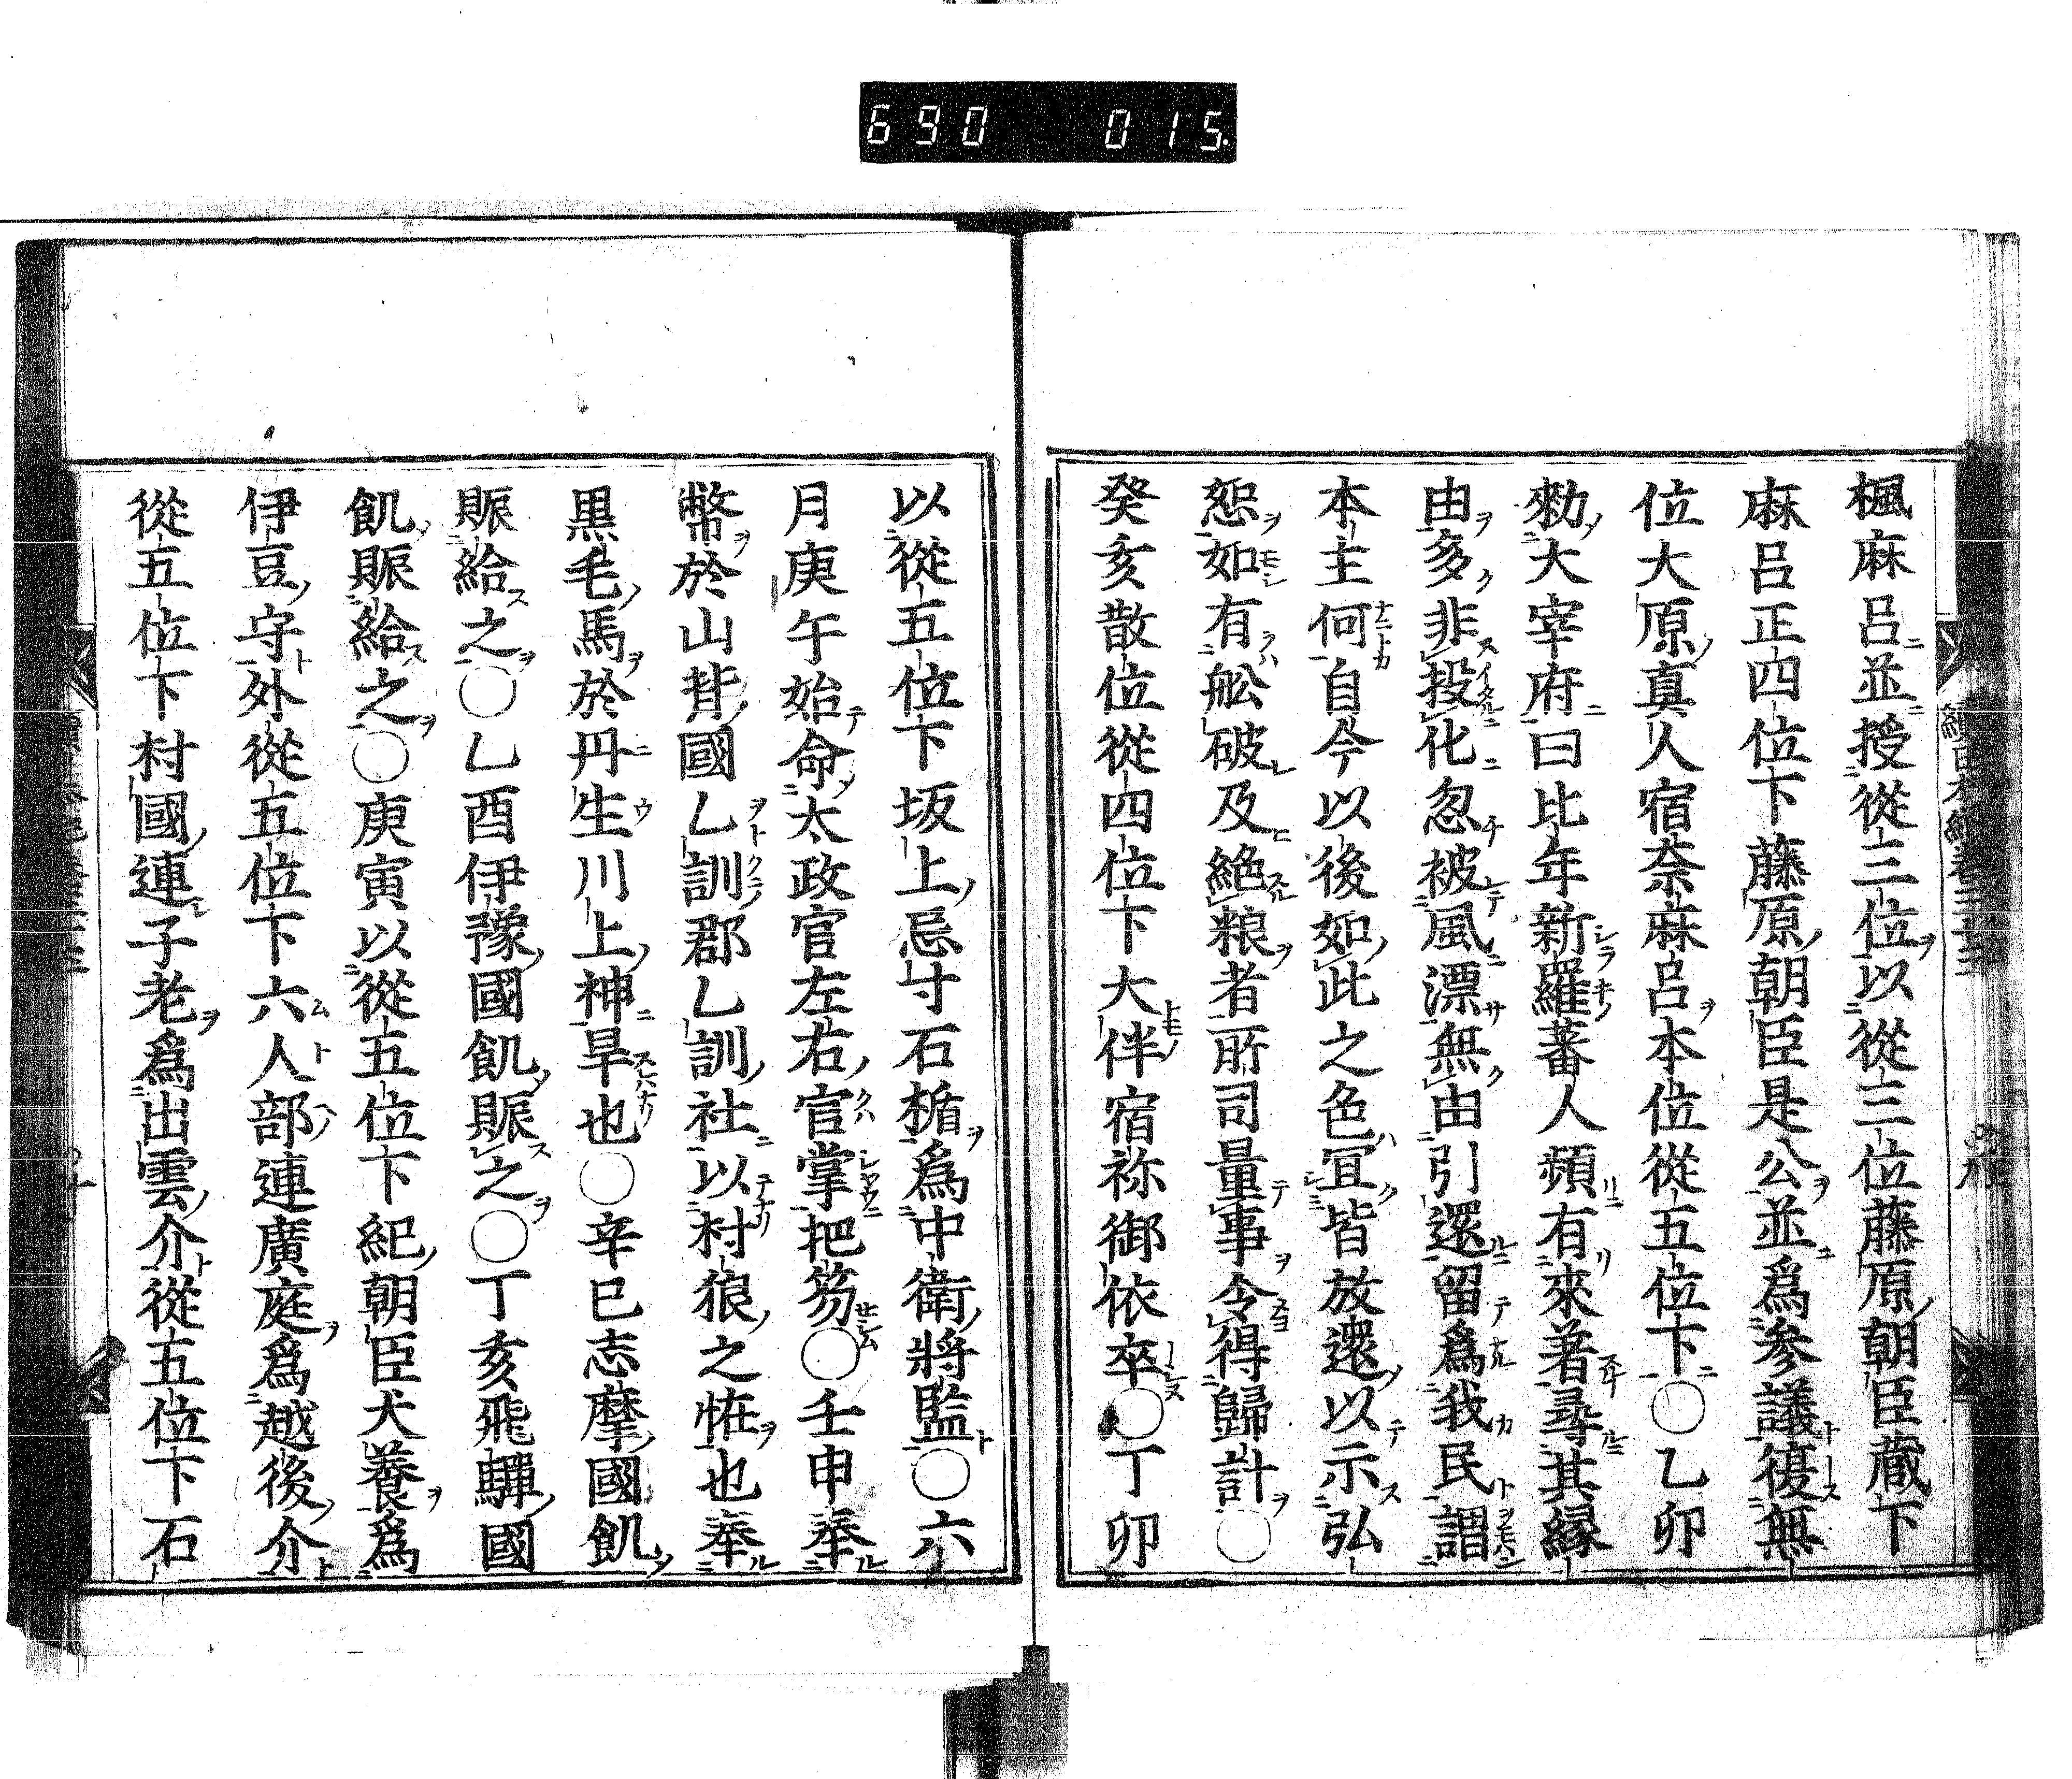 690 015
楓麻呂並授從三位以從三位藤原朝臣蔵下
麻呂正四位下藤原朝臣是公並爲参議復無
位大原真人宿奈麻呂本位從五位下○乙卯
勑大宰府曰比年新羅蕃人頻有來著尋其縁
由多非投化忽被風漂無由引還留爲我民謂
本主何自今以後如此之色冝皆放還以示弘
恕如有舩破及絶粮者所司量事令得歸計○
癸亥散位從四位下大伴宿祢御依卒○丁卯
以從五位下坂上忌寸石楯爲中衛將監○六
月庚午始命太政官左右官掌把笏○壬申奉
幣於山背國乙訓郡乙訓社以村狼之恠也奉
黒毛馬於丹生川上神旱也○辛巳志摩國飢
賑給之○乙酉伊豫國飢賑之○丁亥飛驒國
飢賑給之○庚寅以從五位下紀朝臣犬養爲
伊豆守外從五位下六人部連廣庭爲越後介
從五位下村國連子老爲出雲介從五位下石